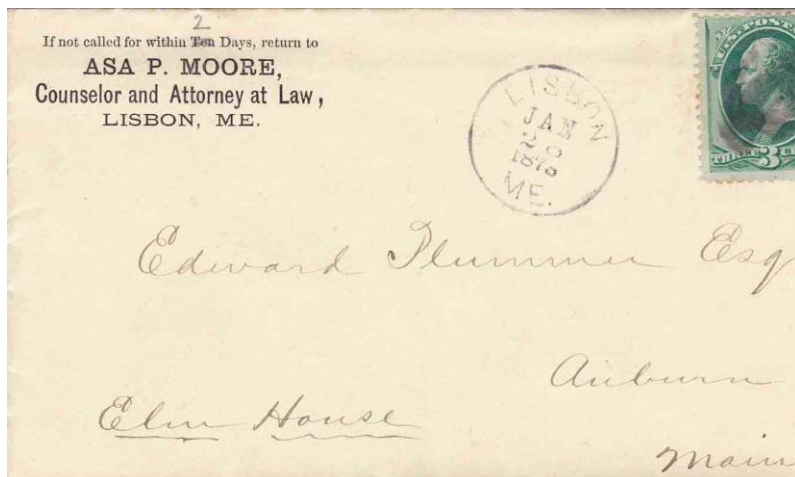 2
If not called for within Ten Days, return to
ASA P. MOORE,
Counselor and Attorney at Law,
LISBON, ME.
LISBON
JAN
28
ME.
U.S. POST
THREE 3 C
Edward Plummer Esq
Auburn
Elm House
Main